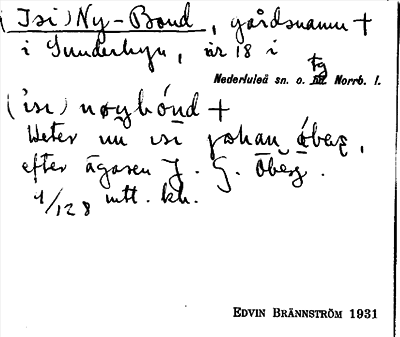 (Isi) Ny-Bond, gårdsnamn +
i Sunderbyn, nr 18 i
Nederluleå sn. o. tg Norrb. l.
(isi) nøybónd +
Heter nu isi johan óberg,
efter ägaren J. G. Öberg.
4/128 mtl. kh.
EDVIN BRÄNNSTRÖM 1931